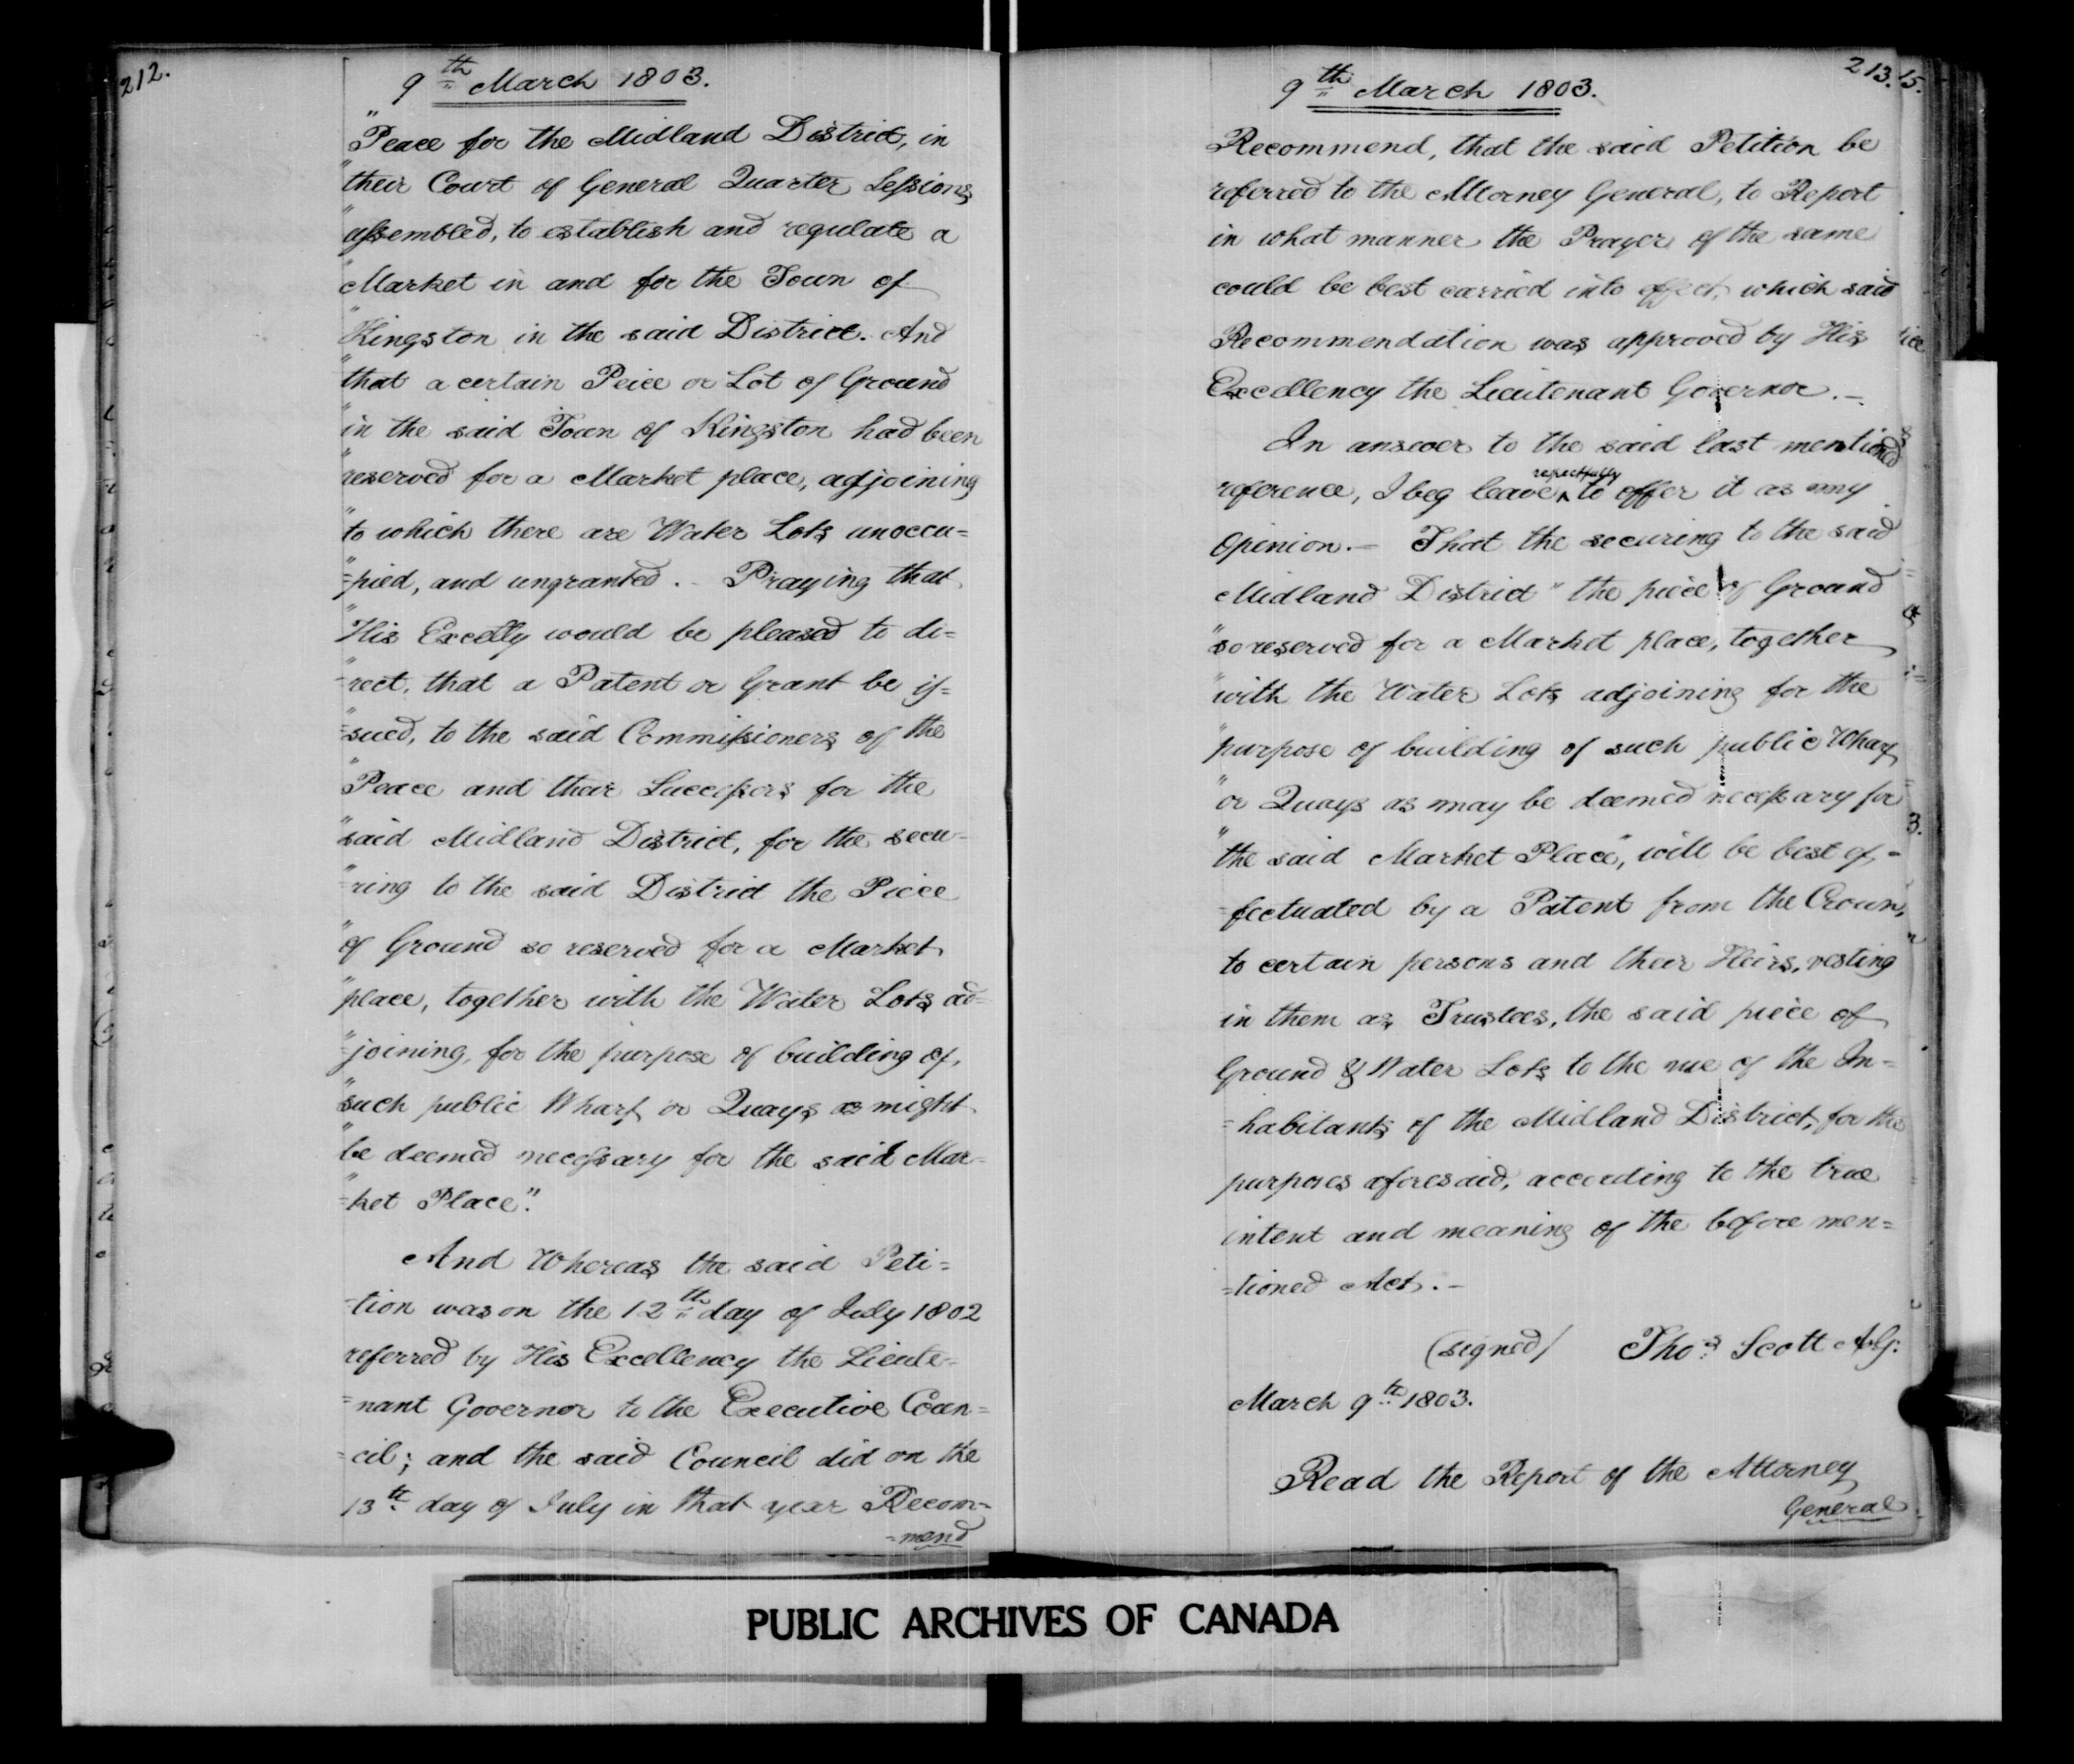 212.
9th March 1803.
"Peace for the Midland District, in
"their Court of General Quarter Sessions
"assembled, to establish and regulate a
"Market in and for the Town of
"Kingston in the said District. And
"that a certain Peice or Lot of Ground
"in the said Town of Kingston had been
"reserved for a Market place, adjoining
"to which there are Water Lots unoccu=
"=pied, and ungranted. - Praying that
"His Excelly would be pleased to di=
"=rect, that a Patent or Grant be is=
"=sued, to the said Commissioners of the
"Peace and their Successors for the
"said Midland District, for the secu=
"=ring to the said District the Piece
"of Ground so reserved for a Market
"place, together with the Water Lots ad=
"=joining, for the purpose of building of,
"such public Wharf or Quays as might
"be deemed necessary for the said Mar=
"=ket Place".
And Whereas the said Peti=
=tion was on the 12th day of July 1802
referred by His Excellency the Lieute=
=nant Governor to the Executive Coun=
=cil; and the said Council did on the
13th day of July in that year Recom=
=mend
213.
9th March 1803.
Recommend, that the said Petition be
referred to the Attorney General, to Report
in what manner the Prayer of the same
could be best carried into effect, which said
Recommendation was approved by His
Excellency the Lieutenant Governor. -
In answer to the said last mentioned
reference, I beg leave ^ respectfully to offer it as my
Opinion. - That the securing to the said
Midland District "the piece of Ground
"so reserved for a Market place, together
"with the Water Lots adjoining for the
"purpose of building of such public Wharf
"or Quays as may be deemed necessary for
"the said Market Place", will be best ef=
=fectuated by a Patent from the Crown,
to certain persons and their Heirs, vesting
in them as Trustees, the said piece of
Ground & Water Lots to the use of the In=
=habitants of the Midland District, for the
purposes aforesaid, according to the true
intent and meaning of the before men=
=tioned Act. -
(signed) Thos Scott A.G:
March 9th 1803.
Read the Report of the Attorney
General
PUBLIC ARCHIVES OF CANADA